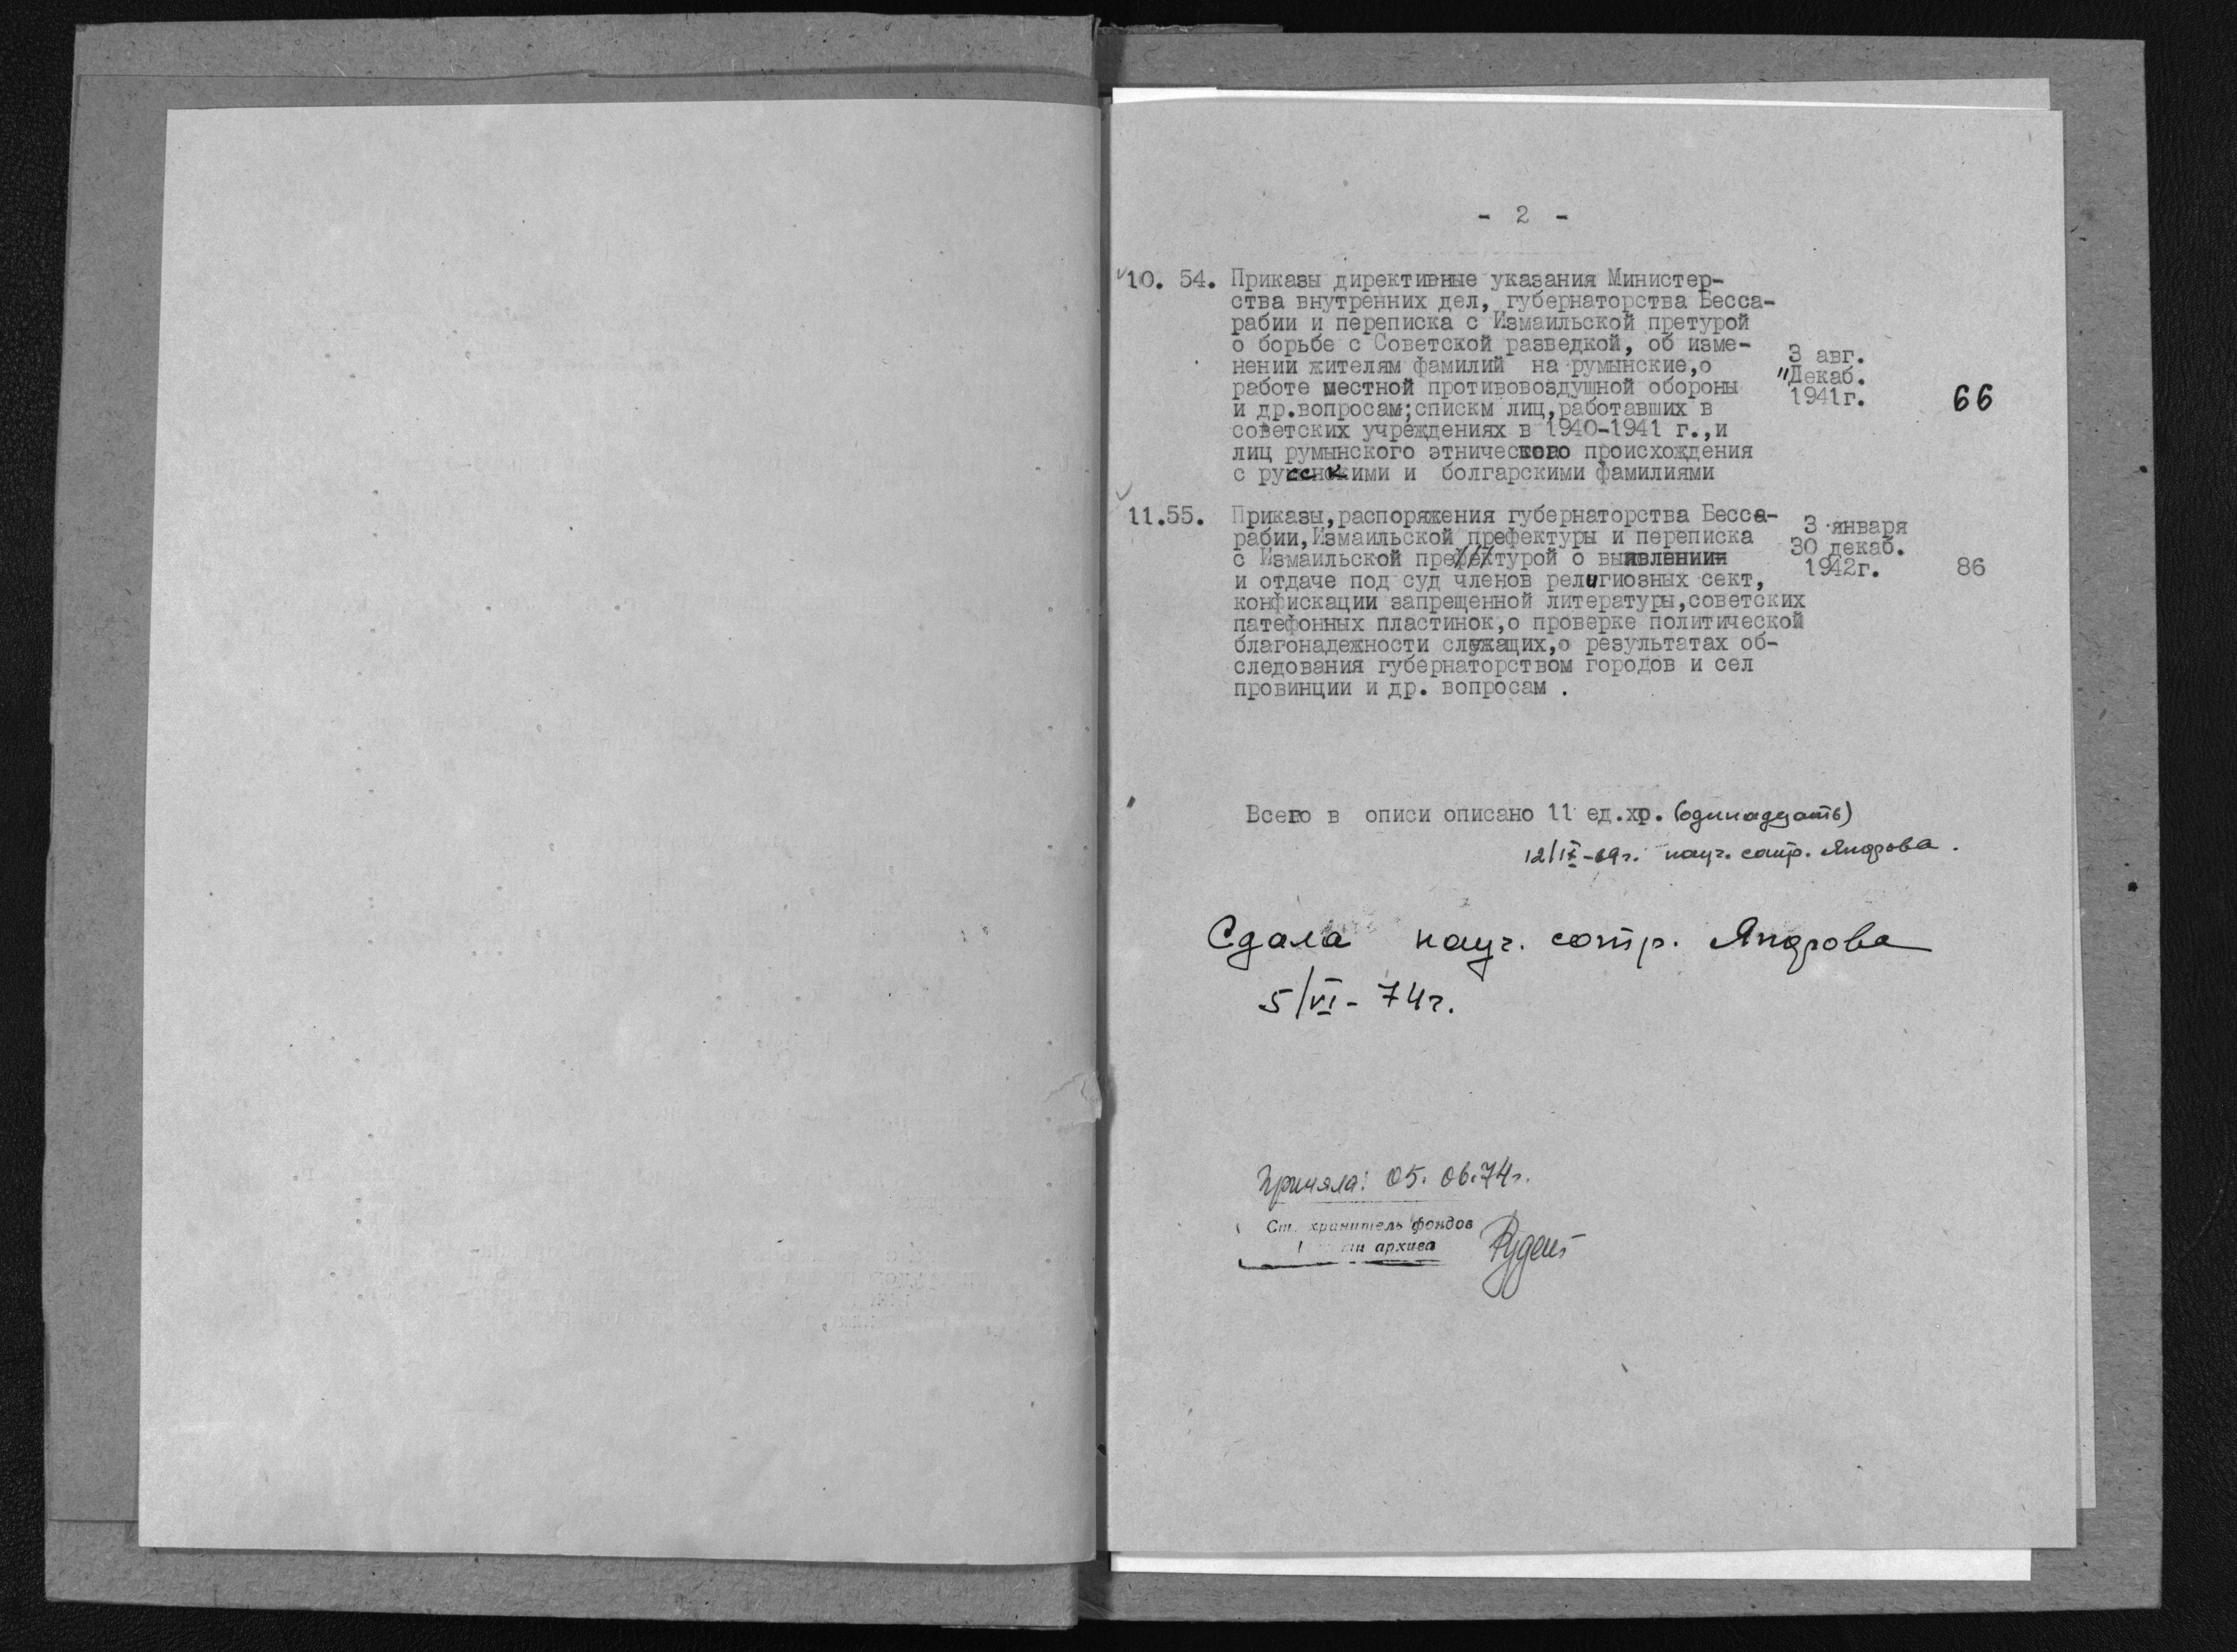 - 2 -
10. 54. Приказы директивные указания Министер-
ства внутренних дел, губернаторства Бесса-
рабии и переписка с Измаильской претурой
о борьбе с Советской разведкой, об изме-
нении жителям фамилий на румынские,о
работе местной противовоздушной обороны
и др.вопросам;спискм лиц,работавших в
советских учреждениях в 1940-1941 г.,и
лиц румынского этнического происхождения
с русскими и болгарскими фамилиями
3 авг.
"Декаб.
1941г.
66
11.55. Приказы,распоряжения губернаторства Бесса-
рабии,Измаильской префектуры и переписка
с Измаильской претурой о выявлении
и отдаче под суд членов религиозных сект,
конфискации запрещенной литературы,советских
патефонных пластинок,о проверке политической
благонадежности служащих,о результатах об-
следования губернаторством городов и сел
провинции и др. вопросам .
3 января
30 декаб.
1942г.
86
Всего в описи описано 11 ед.хр. (одинадцать)
12/IX-69г. науч. сотр. Яндрова.
Сдала науч. сотр. Яндрова
5/VI- 74г.
Приняла: 05. 06.74г.
Ст. хранитель фондов
архива